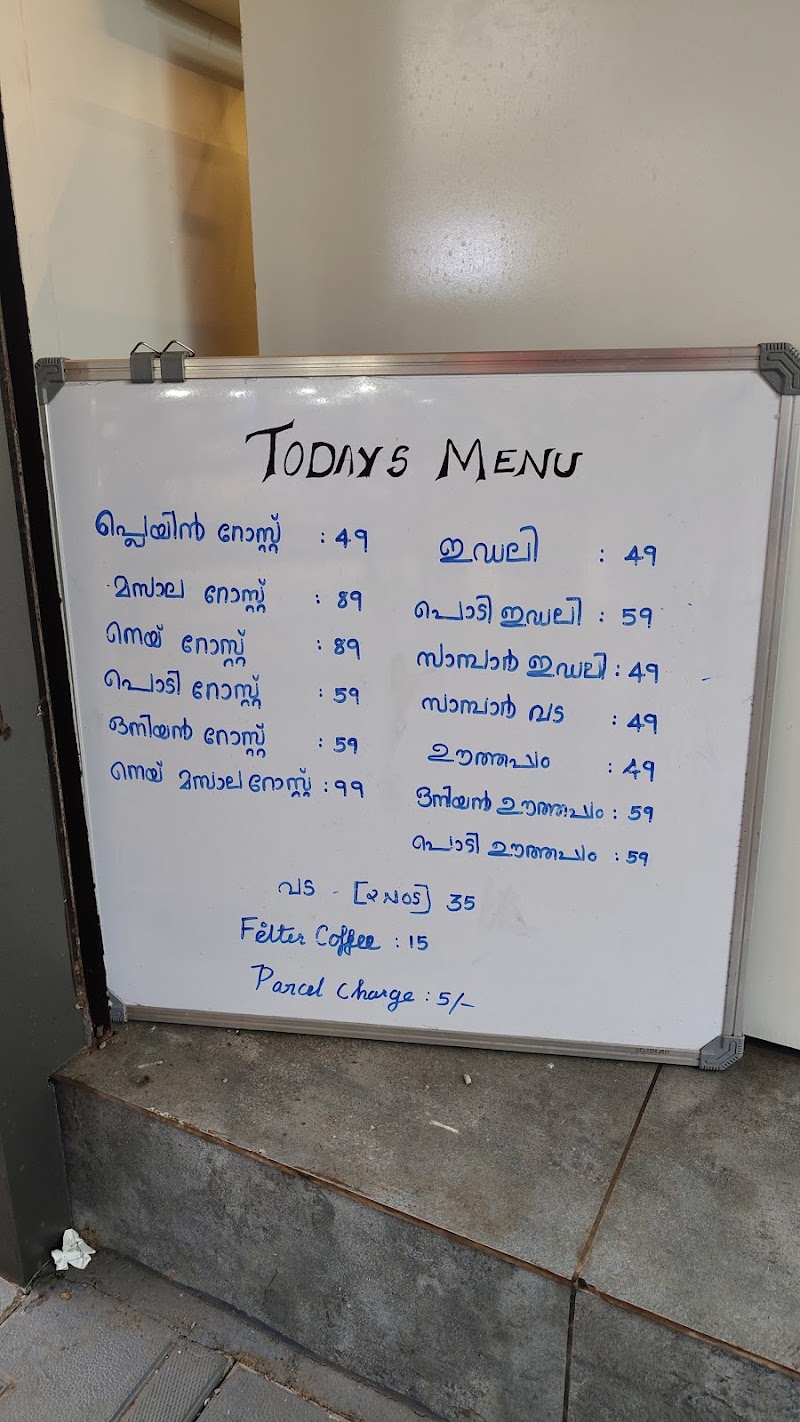 TODAYS MENU
പ്ലെയിൻ റോസ്റ്റ് : 49
മസാല റോസ്റ്റ് : 89
നെയ് റോസ്റ്റ് : 89
പൊടി റോസ്റ്റ് : 59
ഒനിയൻ റോസ്റ്റ് : 59
നെയ് മസാല റോസ്റ്റ് : 99
ഇഡലി : 49
പൊടി ഇഡലി : 59
സാമ്പാർ ഇഡലി : 49
സാമ്പാർ വട : 49
ഊത്തപ്പം : 49
ഒനിയൻ ഊത്തപ്പം : 59
പൊടി ഊത്തപ്പം : 59
വട - [2 NOS] 35
Felter Coffee : 15
Parcel Charge : 5/-